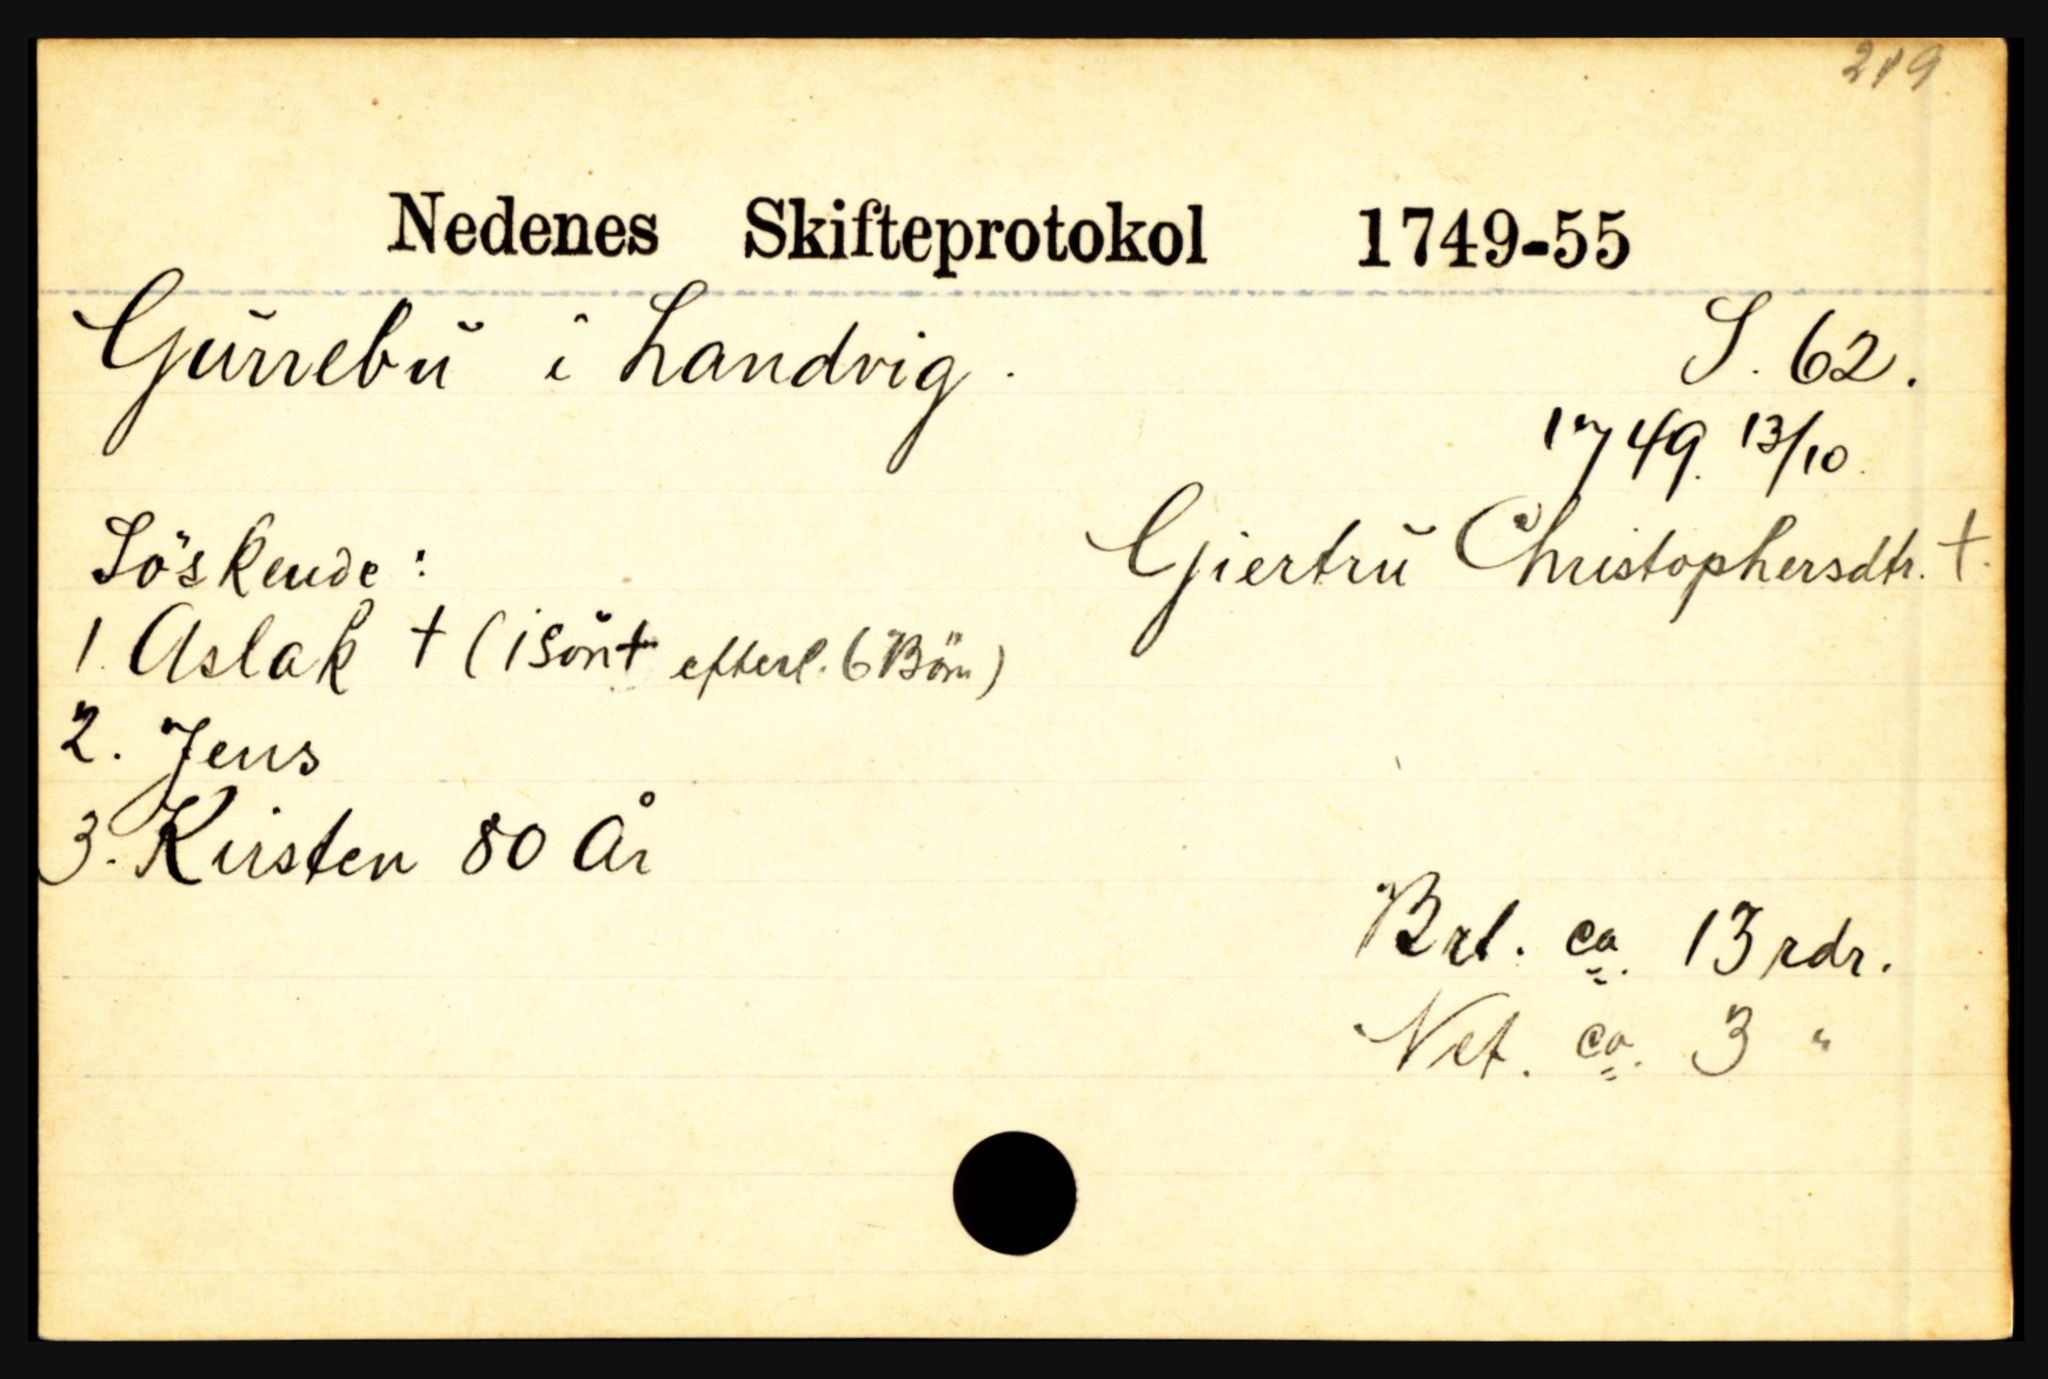 219
Nedenes Skifteprotokol 1749-55
Gurrebu i Landvig. S. 62.
1749. 13/10.
Giertru Christophersdtr. †.
Söskende:
1. Aslak † (1 Sön † efterl. 6 Börn)
2. Jens
3. Kirsten 80 År
Brt. ca. 13 rdr.
Net. ca. 3 "